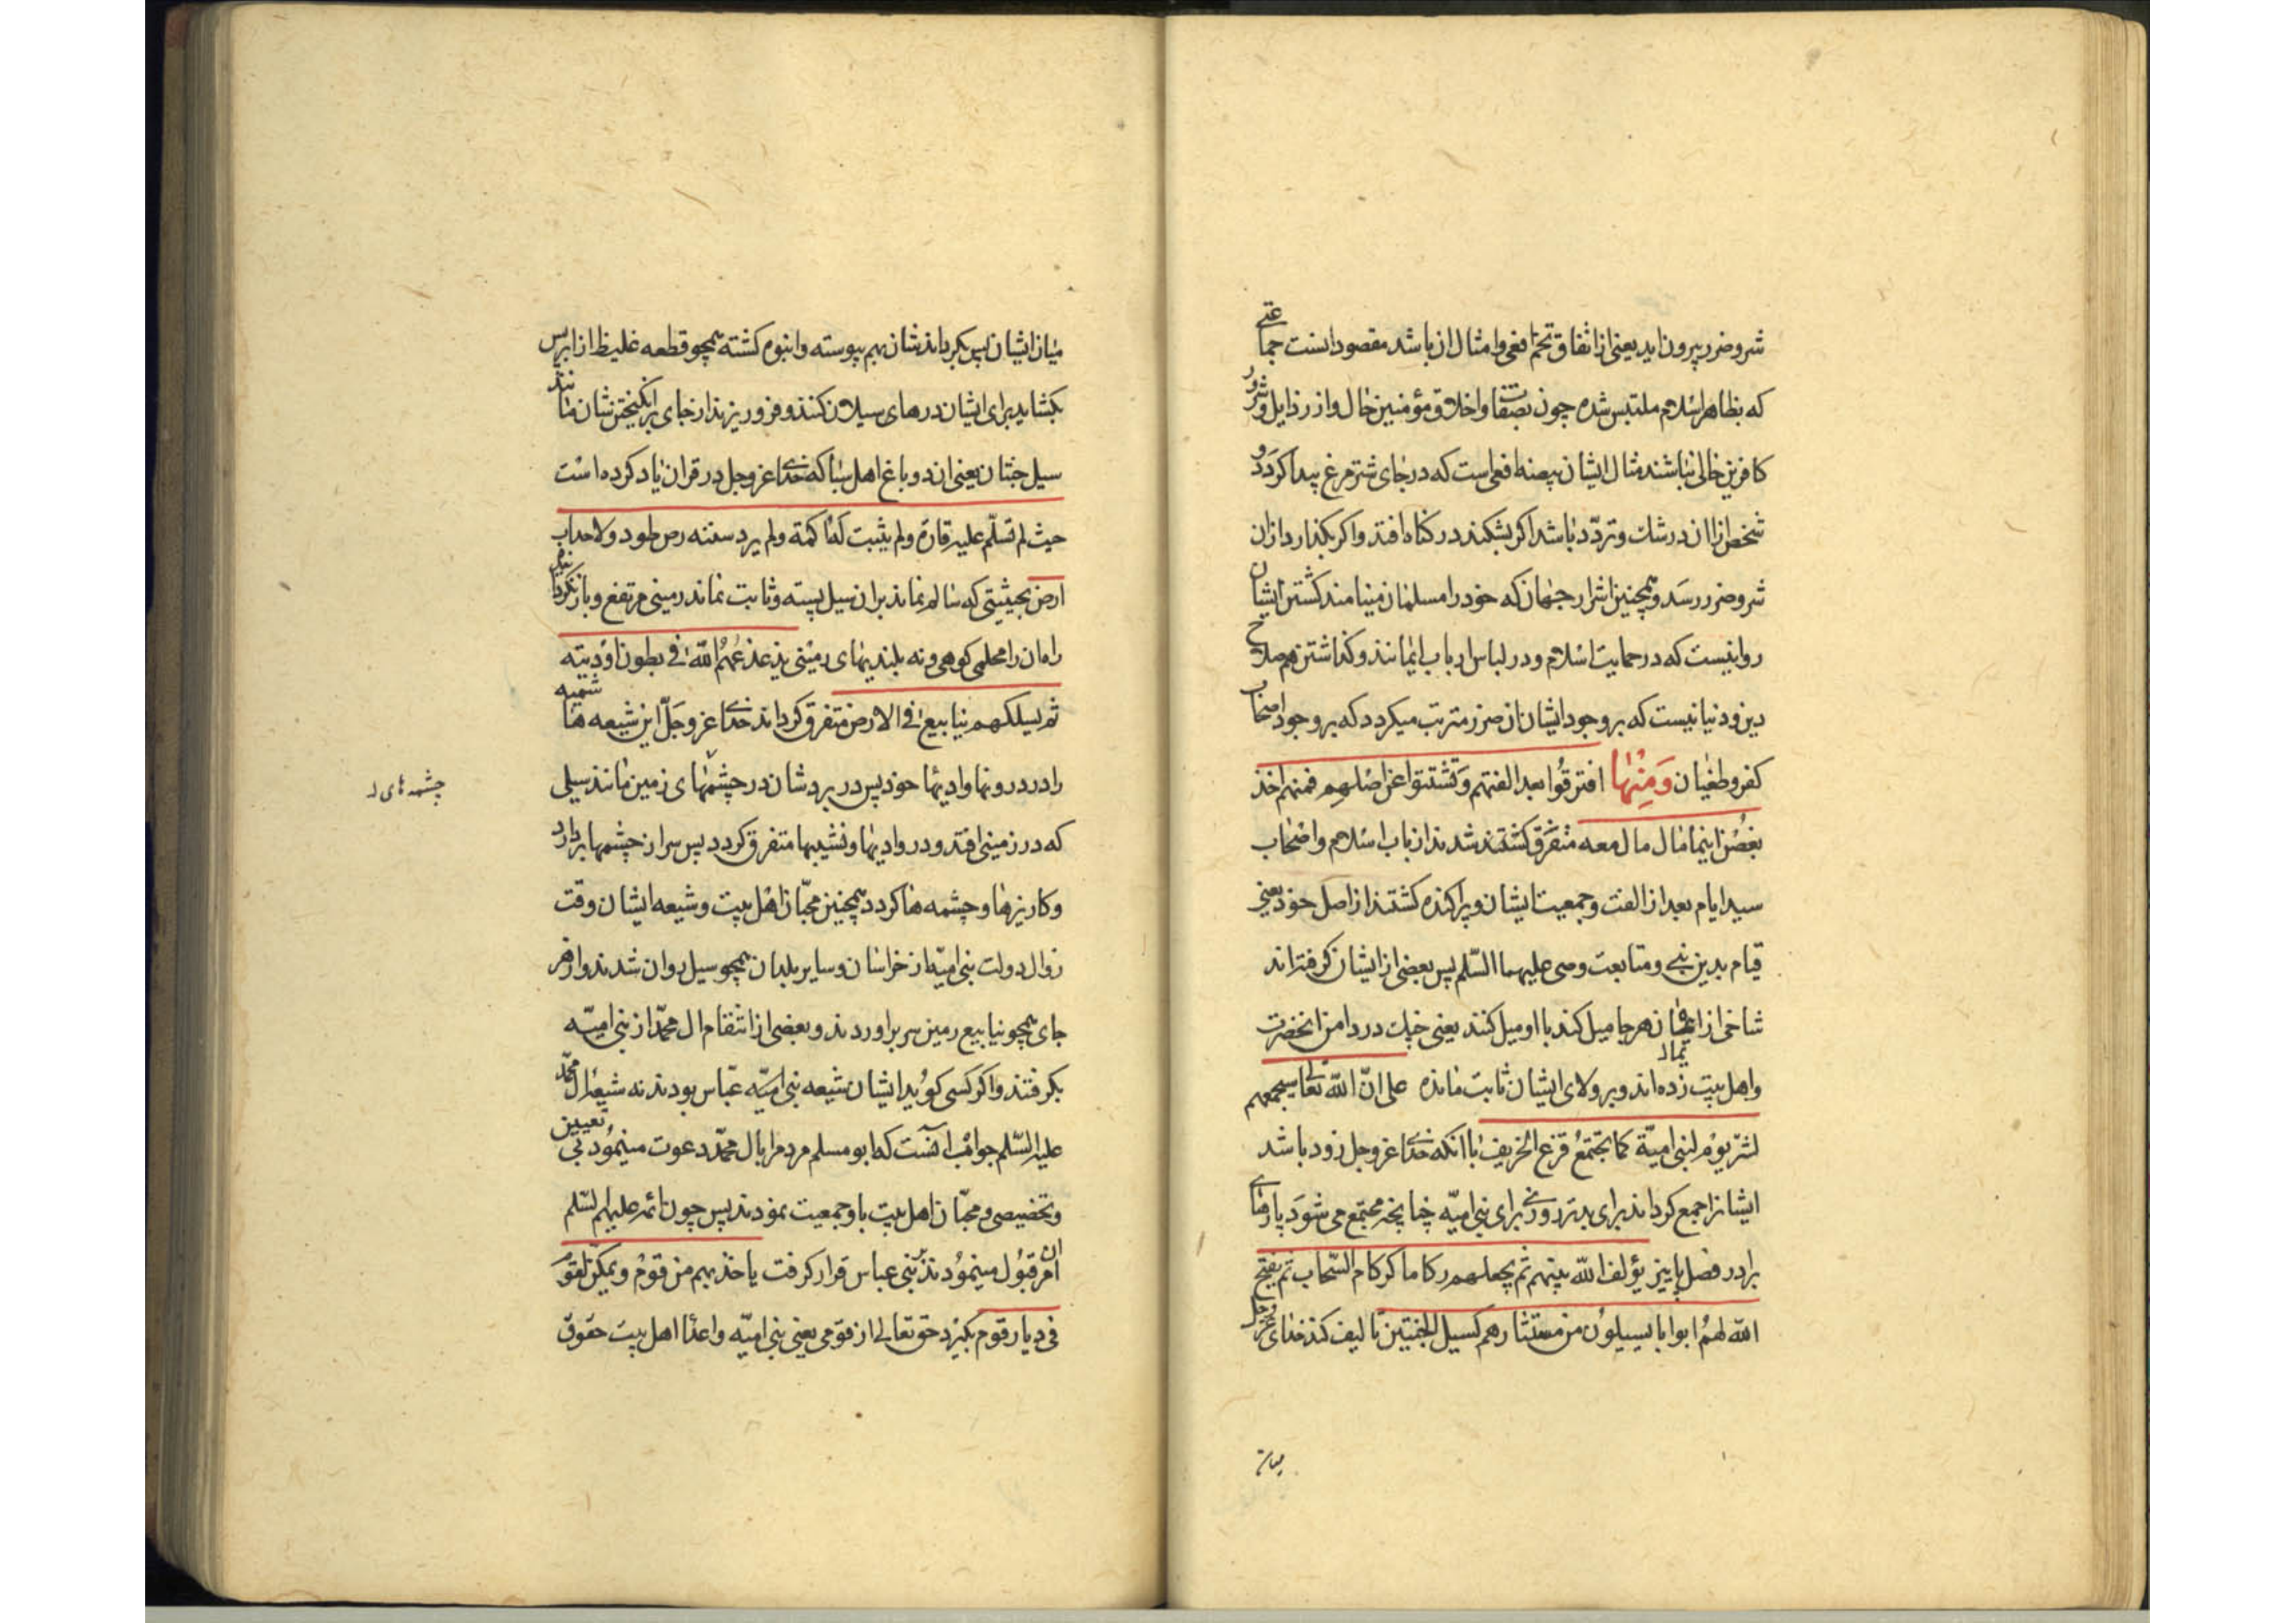 شر و ضرر بیرون اید یعنی از اتفاق تخم افعی و امثال ان باشد مقصود اینست جماعتی
که بظاهر اسلام ملتبس شده چون بصفات و اخلاق مؤمنین خال و از رذایل و شرور
کافرین خالی نباشند مثال ایشان بیضه افعی است که در جای شترمرغ پیدا کردد و
شخص از ان در شک و تردّد باشد اکر بشکند در کناه افتد و اکر بکذارد از ان
شر و ضرر رسَد و همچنین اشرار جهان که خود را مسلمان مینامند کشتن ایشان
روا نیست که در حمایت اسلام و در لباس ارباب ایمانند و کذاشتن هم صلاح
دین و دنیا نیست که بر وجود ایشان ان ضرر مترتب میکردد که بر وجود اصحاب
کفر و طغیان وَمِنْهٰا افترقُوا بعد الفتهم وَتشتتوا عن اصْلهم فمنهم اخذ
بغُصْن اینما مال مال معه متفَرّق کشتند شدند ارباب اسلام و اصْحاب
سید ایام بعد از الفت و جمعیت ایشان و پراکنده کشتند از اصل خود یعنی
قیام بدین نبی و متابعت وصی علیهما السّلم پس بعضی از ایشان کرفته‌اند
شاخی از ایشان هر جا میل کند با او میل کنند یعنی چنک در دامن انحضرت
و اهل بیت زده‌اند و بر ولای ایشان ثابت مانده علی انّ الله تعالی سیجمعهم
لشرّ یوْم لبنی امیّة کما تجتمعُ قزع الخریف با انکه خدای عزوجل زود باشد
ایشانرا جمع کرداند برای بدتر روزی برای بنی امیّه چنانچه مجتمع می شوَد پارهای
ابر در فصل پاییز یؤلف الله بینهم ثم یجعلهم رکاما کرکام السّحاب ثم یفتح
الله لهمُ ابوابا یسیلوُن من مستثارهم کسیل الجنتین تالیف کند خدای عزّ وجل
میان
میان ایشان پس بکرداندشان بهم پیوسته و انبوه کشته همچو قطعه غلیظ از ابر پس
بکشاید برای ایشان درهای سیلان کنند و فرو ریزند از جای برانکیختن شان مانند
سیل جنتان یعنی ان دو باغ اهل سبا که خدای عزوجل در قران یاد کرده است
حیث لم تسلّم علیه قارة ولم یثبت له اکمة ولم یرد سننه رص طود ولا حداب
ارض بحیثیتی که سالم نماند بر ان سیل پسته و ثابت نماند زمینی مرتفع و باز نکرداند
راه ان را محلمی کوهی و نه بلندیهای زمینی یذعذعُهُمُ اللّه فی بطون اوْدیته
ثم یسلکهم ینابیع فی الارض متفرق کرداند خدای عزوجَلّ این شیعه ها
را در درونها وادیها خود پس در بردشان در چشمهای زمین مانند سیلی
که در زمینی افتد و در وادیها و نشیبها متفرق کردد پس سر از چشمها بر ارد
و کاریزها و چشمه ها کردد همچنین محبّان اهْل بیت و شیعه ایشان وقت
زوال دولت بنی امیّه از خراسان و سایر بلدان همچو سیل روان شدند و از هر
جای همچو ینابیع زمین سر براوردند و بعضی از انتقام ال محمّد از بنی امیّه
بکرفتند و اکر کسی کوُید ایشان شیعه بنی امیّه عبّاس بودند نه شیعه ال محمّد
علیه السّلم جوابْ انست که ابو مسلم مردم را بال محمّد دعوت مینموُد بی تعیین
و تخصیصی و محبّان اهل بیت با و جمعیت نمودند پس چون ائمه علیهم السّلم
ان امر قبوُل مینموُدند بر بنی عباس قرار کرفت یاخذ بهم من قوْم و یمکّن لقوْم
فی دیار قوم بکیرد حق تعالی از قومی یعنی بنی امیّه و اعدا اهل بیت حقوق
چشمه‌های